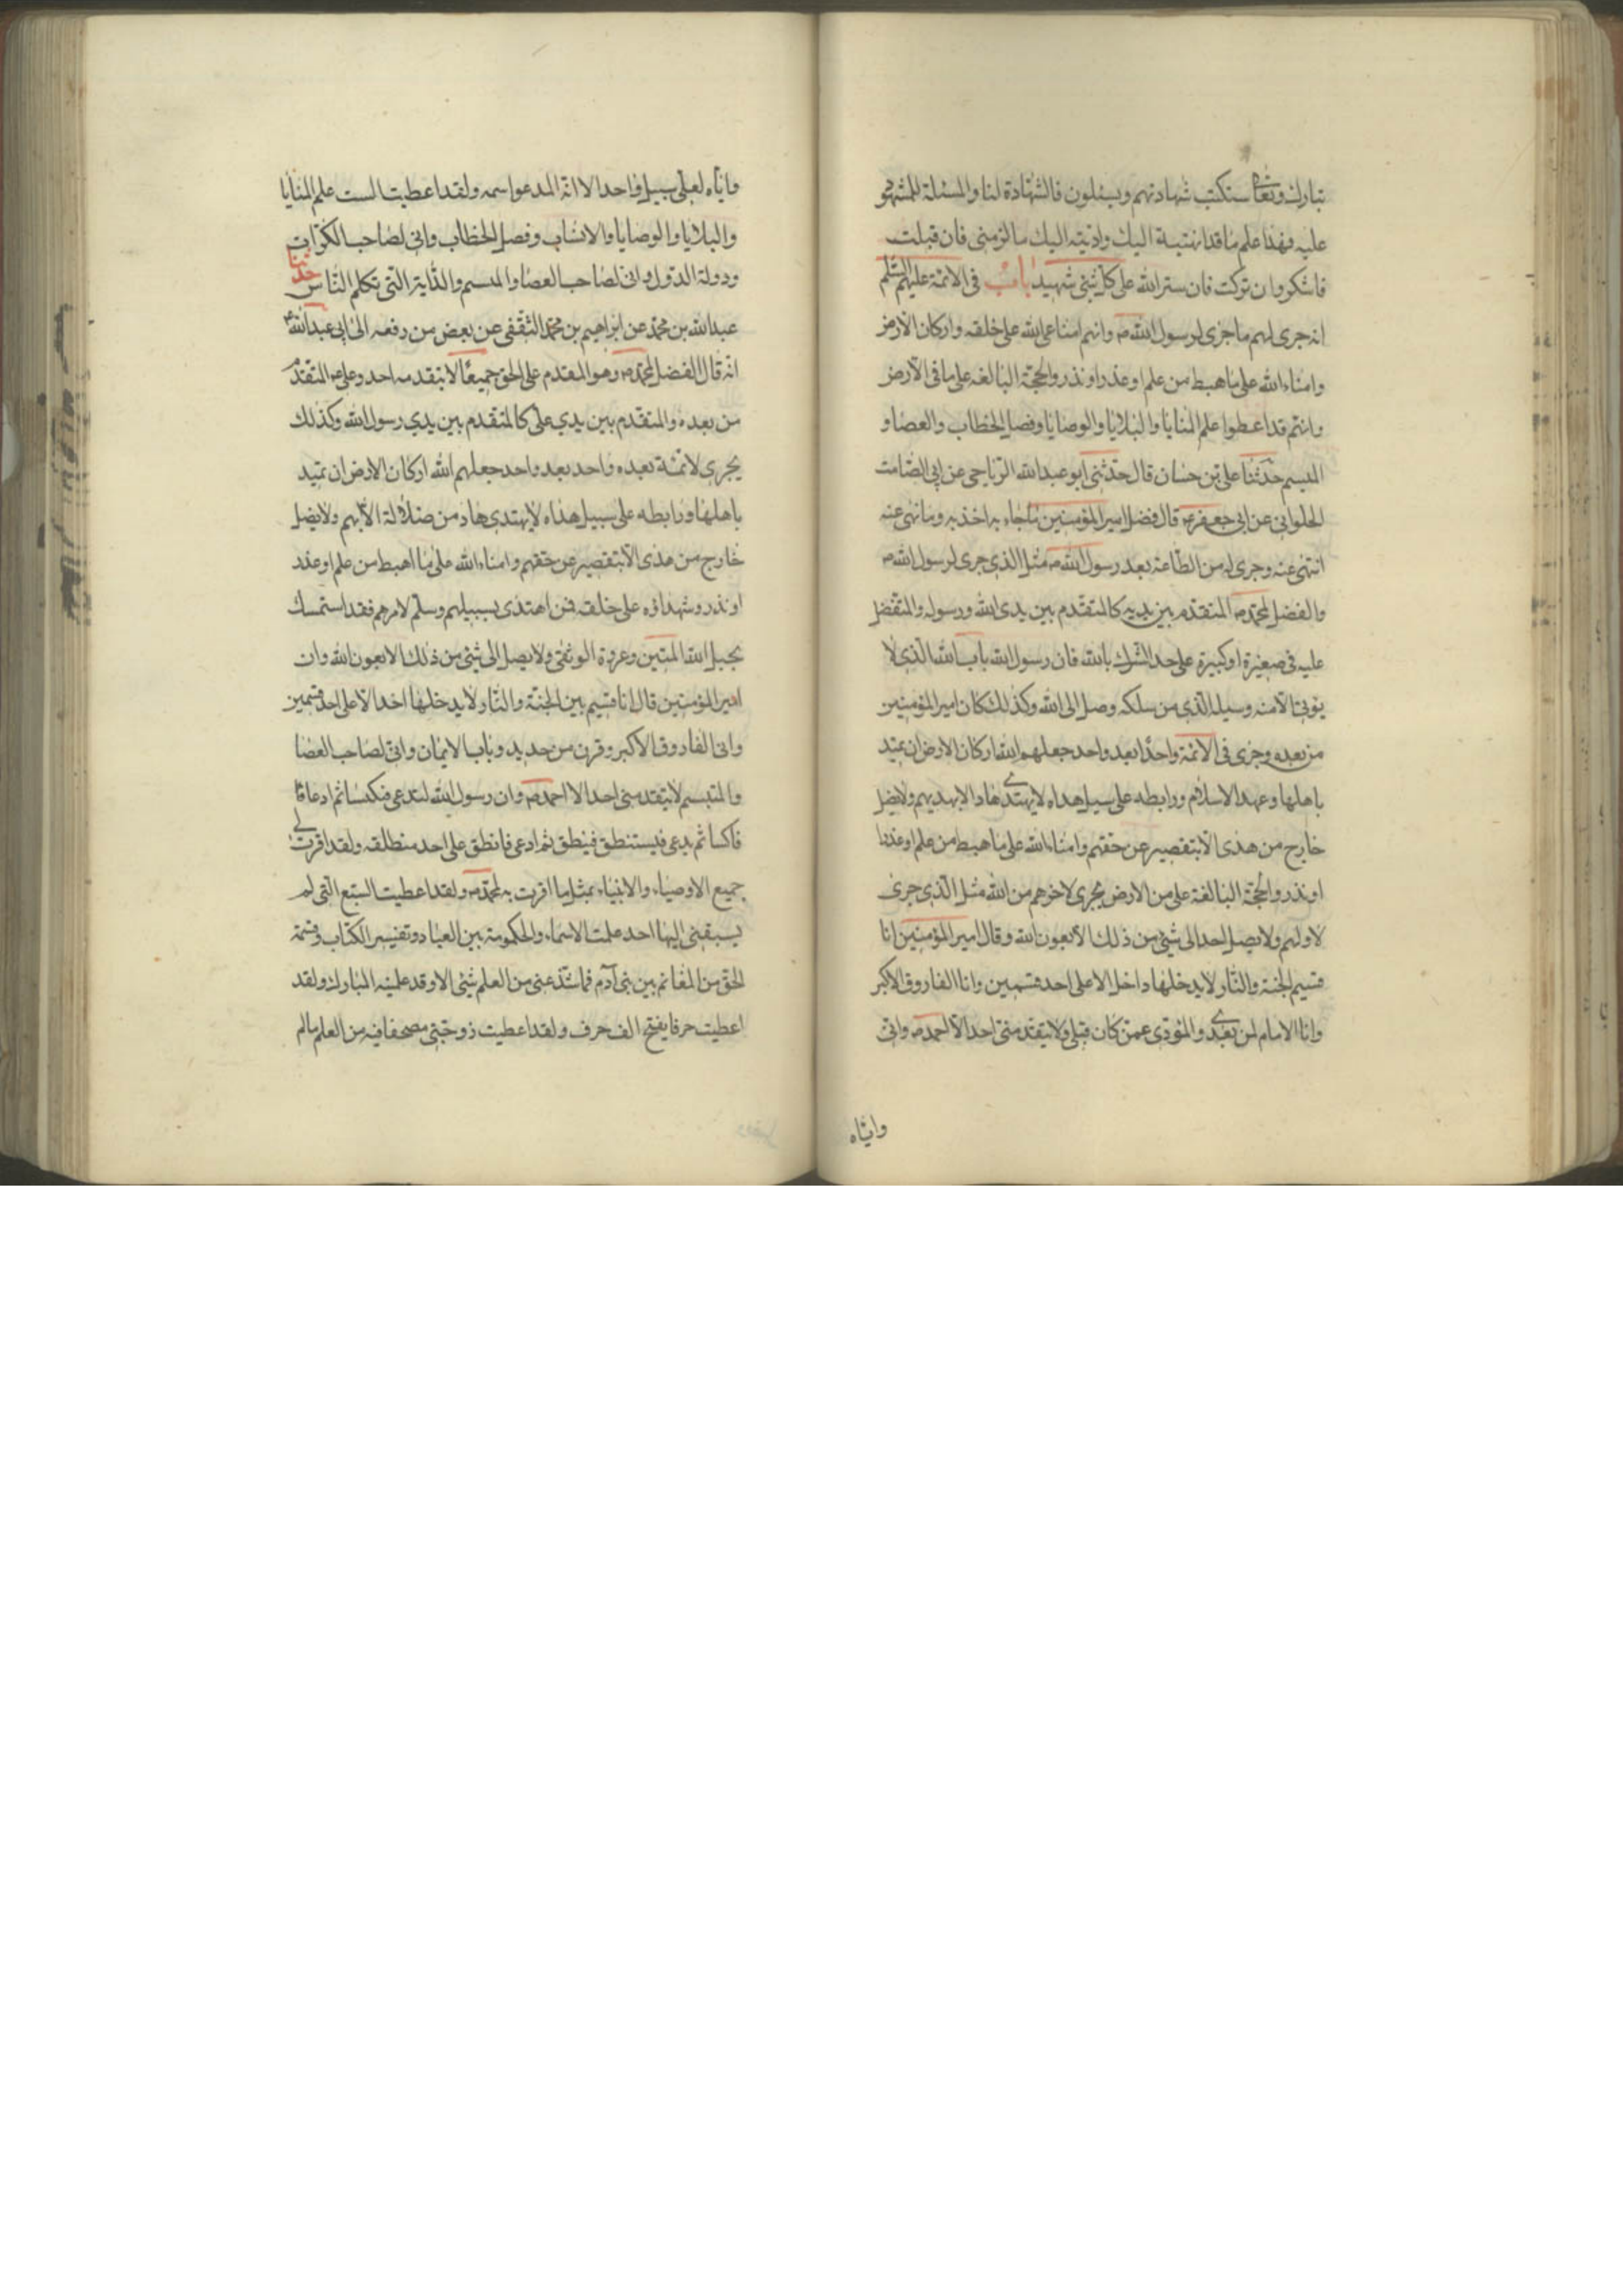 تبارك وتعالى ستكتب شهادتهم ويسئلون فالشهادة لنا والمسئلة للمشهود
عليه فهذا علم ما قد انهيته اليك واديته اليك ما لزمنى فان قبلت
فاشكر وان تركت فان ستر الله على كل شئ شهيد باب فى الائمة عليهم السلم
انه جرى لهم ما جرى لرسول الله ص وانهم امناء الله على خلقه واركان الارض
وامناء الله على ما هبط من علم او عذر او نذر والحجة البالغة على ما فى الارض
وانهم قد اعطوا علم المنايا والبلايا والوصايا وفصل الخطاب والعصا و
الميسم حدثنا على بن حسان قال حدثنى ابو عبد الله الرياحى عن ابى الصامت
الحلوانى عن ابى جعفر ع قال فضل امير المؤمنين ما جاء به اخذ به وما نهى عنه
انتهى عنه وجرى له من الطاعة بعد رسول الله ص مثل الذى جرى لرسول الله ص
والفضل لمحمد ص المتقدم بين يديه كالمتقدم بين يدى الله ورسوله والمتفضل
عليه فى صغيرة او كبيرة على حد الشرك بالله فان رسول الله باب الله الذى لا
يؤتى الا منه وسبيله الذى من سلكه وصل الى الله وكذلك كان امير المؤمنين
من بعده وجرى فى الائمة واحدا بعد واحد جعلهم الله اركان الارض ان تميد
باهلها وعهد الاسلام ورابطه على سبيل هداه لا يهتدى هاد الا بهديهم ولا يضل
خارج من هدى الا بتقصير عن حقهم وامناء الله على ما هبط من علم او عذر
او نذر والحجة البالغة على من الارض يجرى لاخرهم من الله مثل الذى جرى
لاولهم ولا يصل احد الى شئ من ذلك الا بعون الله وقال امير المؤمنين انا
قسيم الجنة والنار لا يدخلها داخل الا على احد قسمين وانا الفاروق الاكبر
وانا الامام لمن بعدى والمؤدى عمن كان قبلى ولا يتقدمنى احد الا احمد ص وانى
واياه
واياه لعلى سبيل واحد الا انه المدعو باسمه ولقد اعطيت الست علم المنايا
والبلايا والوصايا والانساب وفصل الخطاب وانى لصاحب الكرات
ودولة الدول وانى لصاحب العصا والميسم والدابة التى تكلم الناس حدثنا
عبد الله بن محمد عن ابراهيم بن محمد الثقفى عن بعض من رفعه الى ابى عبد الله ع
انه قال الفضل لمحمد ص وهو المقدم على الخلق جميعا لا يتقدمه احد وعلى ع المتقدم
من بعده والمتقدم بين يدي على كالمتقدم بين يدي رسول الله وكذلك
يجرى لائمة بعده واحد بعد واحد جعلهم الله اركان الارض ان تميد
باهلها ورابطه على سبيل هداه لا يهتدى هاد من ضلالة الا بهم ولا يضل
خارج من هدى الا بتقصير عن حقهم وامناء الله على ما اهبط من علم او عذر
او نذر وشهداؤه على خلقه فمن اهتدى بسبيلهم وسلم لامرهم فقد استمسك
بحبل الله المتين وعروة الوثقى ولا يصل الى شئ من ذلك الا بعون الله وان
امير المؤمنين قال انا قسيم بين الجنة والنار لا يدخلها احد الا على احد قسمين
وانى الفاروق الاكبر وقرن من حديد وباب الايمان وانى لصاحب العصا
والميسم لا يتقدمنى احد الا احمد ص وان رسول الله ليدعى فيكسا ثم ادعا فا
فاكسا ثم يدعى فيستنطق فينطق ثم ادعى فانطق على احد منطلقه ولقد اقرت لى
جميع الاوصياء والانبياء بمثل ما اقرت به لمحمد ص ولقد اعطيت السبع التى لم
يسبقنى اليها احد علمت الاسماء والحكومة بين العباد وتفسير الكتاب وقسمة
الحق من المغانم بين بنى آدم فما شذ عنى من العلم شئ الا وقد علمنيه المبارك ولقد
اعطيت حرفا يفتح الف حرف ولقد اعطيت زوجتى مصحفا فيه من العلم ما لم